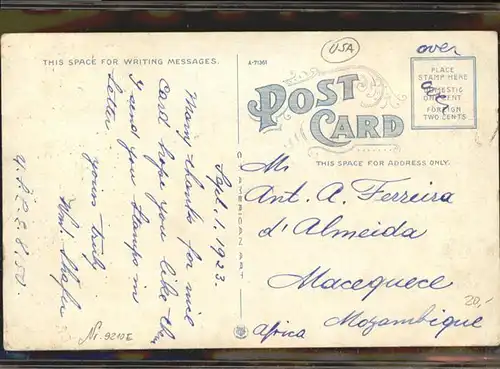 THIS SPACE FOR WRITING MESSAGES.
A-71361
USA
over
POST
CARD
THIS SPACE FOR ADDRESS ONLY.
PLACE
STAMP HERE
DOMESTIC
ONE CENT
FOREIGN
TWO CENTS
over
C. T. AMERICAN ART
Sept. 1, 1923.
Many thanks for nice
Card hope you like this
I send you stamps in
Letter.
yours truly
Mr
Ant. A. Ferreira
d'Almeida
Macequece
Mozambique
Africa
20,-
Nr. 9210E